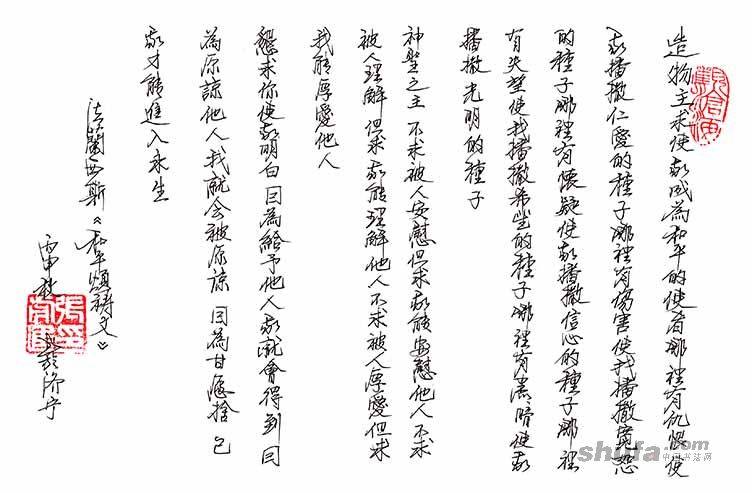 造物主求使我成為和平的使者哪裡有仇恨使
我播撒仁愛的種子哪裡有傷害使我播撒寬恕
的種子哪裡有懷疑使我播撒信心的種子哪裡
有失望使我播撒希望的種子哪裡有黑暗使我
播撒光明的種子
神聖之主 不求被人安慰但求我能安慰他人不求
被人理解 但求我能理解他人不求被人厚愛但求
我能厚愛他人
懇求你使我明白因為給予他人我就會得到因
為原諒他人我就会被原諒 因為甘願捨己
我才能進入永生
法蘭西斯《和平頌禱文》
丙申秋
濟寧
shufa.com
中国书法网